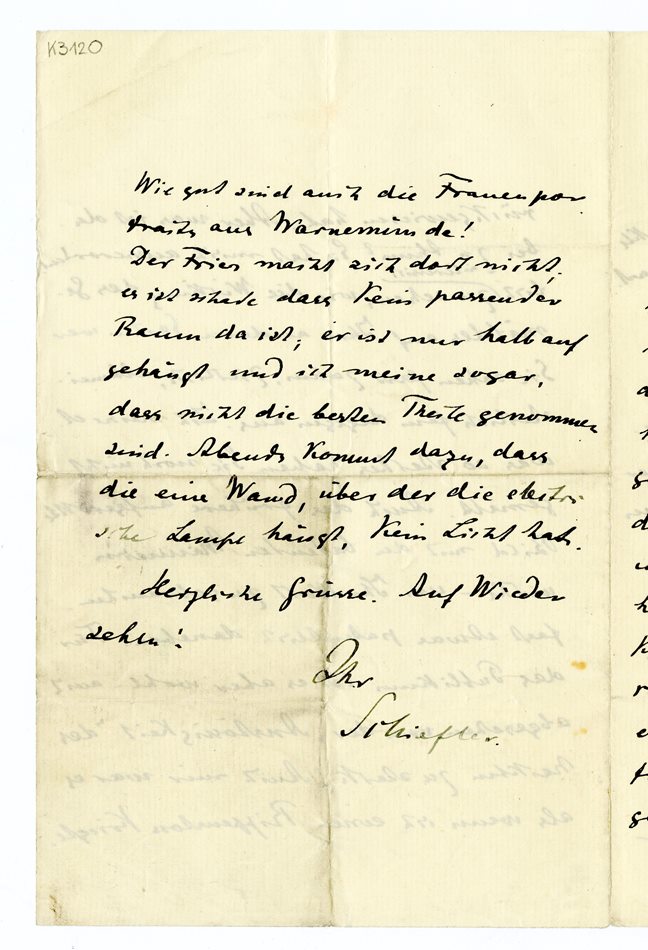 K3120
Wie gut sind auch die Frauenpor
traits aus Warnemünde!
Der Fries macht sich dort nicht,
es ist schade dass kein passender
Raum da ist; er ist nur halb auf
gehängt und ich meine sogar,
dass nicht die besten Theile genommen
sind. Abends kommt dazu, dass
die eine Wand, über der die elektri
sche Lampe hängt, kein Licht hat.
Herzliche Grüsse. Auf Wieder
sehen!
Ihr
Schiefler.